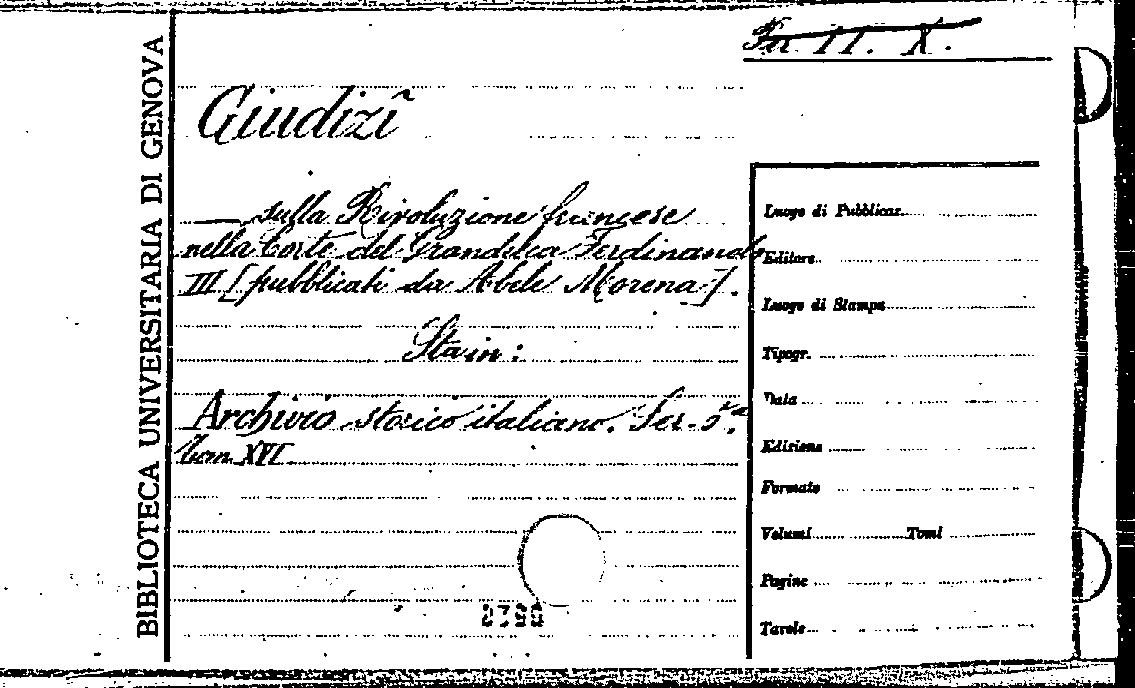 BIBLIOTECA UNIVERSITARIA DI GENOVA
Per II. X.
Giudizî
— sulla Rivoluzione francese
nella Corte del Granduca Ferdinando
III [pubblicati da Abele Morena].
Sta in:
Archivio storico italiano. Ser. 5ª.
Tom XVI
Luogo di Pubblicaz.
Editore
Luogo di Stampa
Tipogr.
Data
Edizione
Formato
Volumi Tomi
Pagine
Tavole